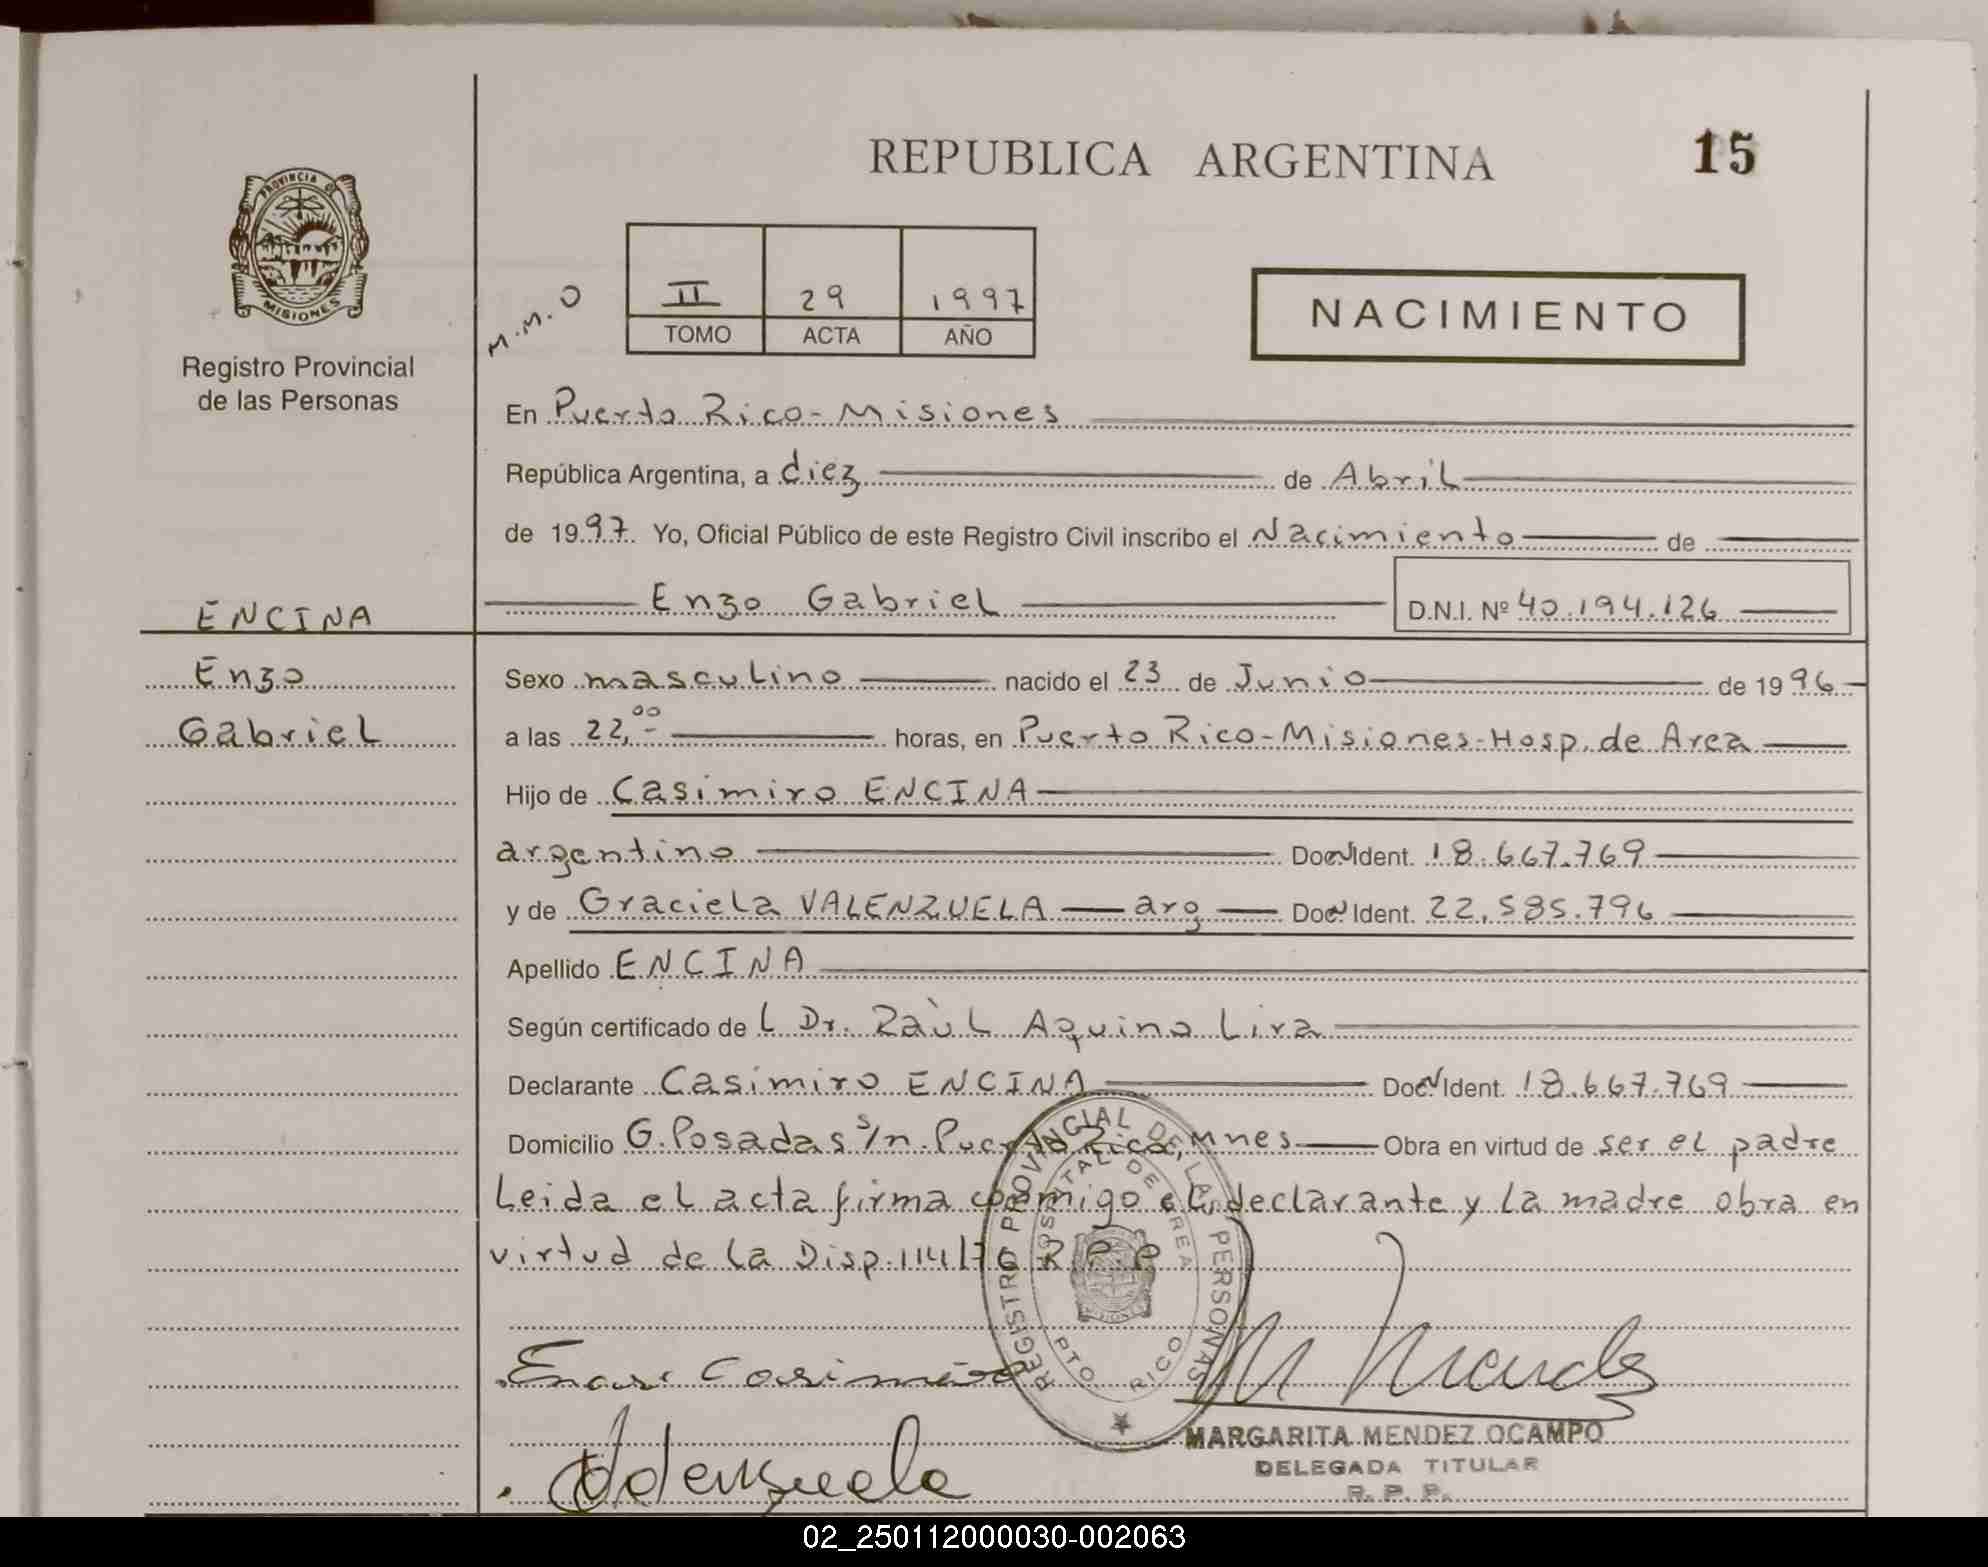 REPUBLICA ARGENTINA
15
PROVINCIA DE MISIONES
Registro Provincial
de las Personas
M.M.O
II 29 1997
TOMO ACTA AÑO
NACIMIENTO
En Puerto Rico - Misiones
República Argentina, a diez de Abril
de 1997. Yo, Oficial Público de este Registro Civil inscribo el Nacimiento de
Enzo Gabriel D.N.I. Nº 40.194.126
ENCINA
Enzo
Gabriel
Sexo masculino nacido el 23 de Junio de 1996
a las 22,00 horas, en Puerto Rico-Misiones-Hosp. de Area
Hijo de Casimiro ENCINA
argentino Doc. Ident. 18.667.769
y de Graciela VALENZUELA arg Doc. Ident. 22.585.796
Apellido ENCINA
Según certificado de L Dr. Raùl Aquino Lira
Declarante Casimiro ENCINA Doc. Ident. 18.667.769
Domicilio G. Posadas s/n. Puerto Rico, Mnes Obra en virtud de ser el padre
Leida el acta firma conmigo el declarante y la madre obra en
virtud de la Disp. 114/76 R.P.P
REGISTRO PROVINCIAL DE LAS PERSONAS
HOSPITAL DE AREA
PTO. RICO
Casimiro
MARGARITA MENDEZ OCAMPO
DELEGADA TITULAR
R. P. P.
02_250112000030-002063